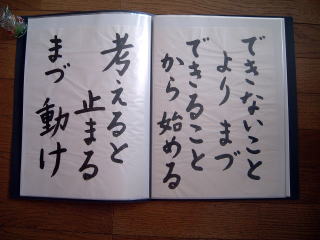 できないこと
より まづ
できること
から 始める
考えると
止まる
まづ 動け